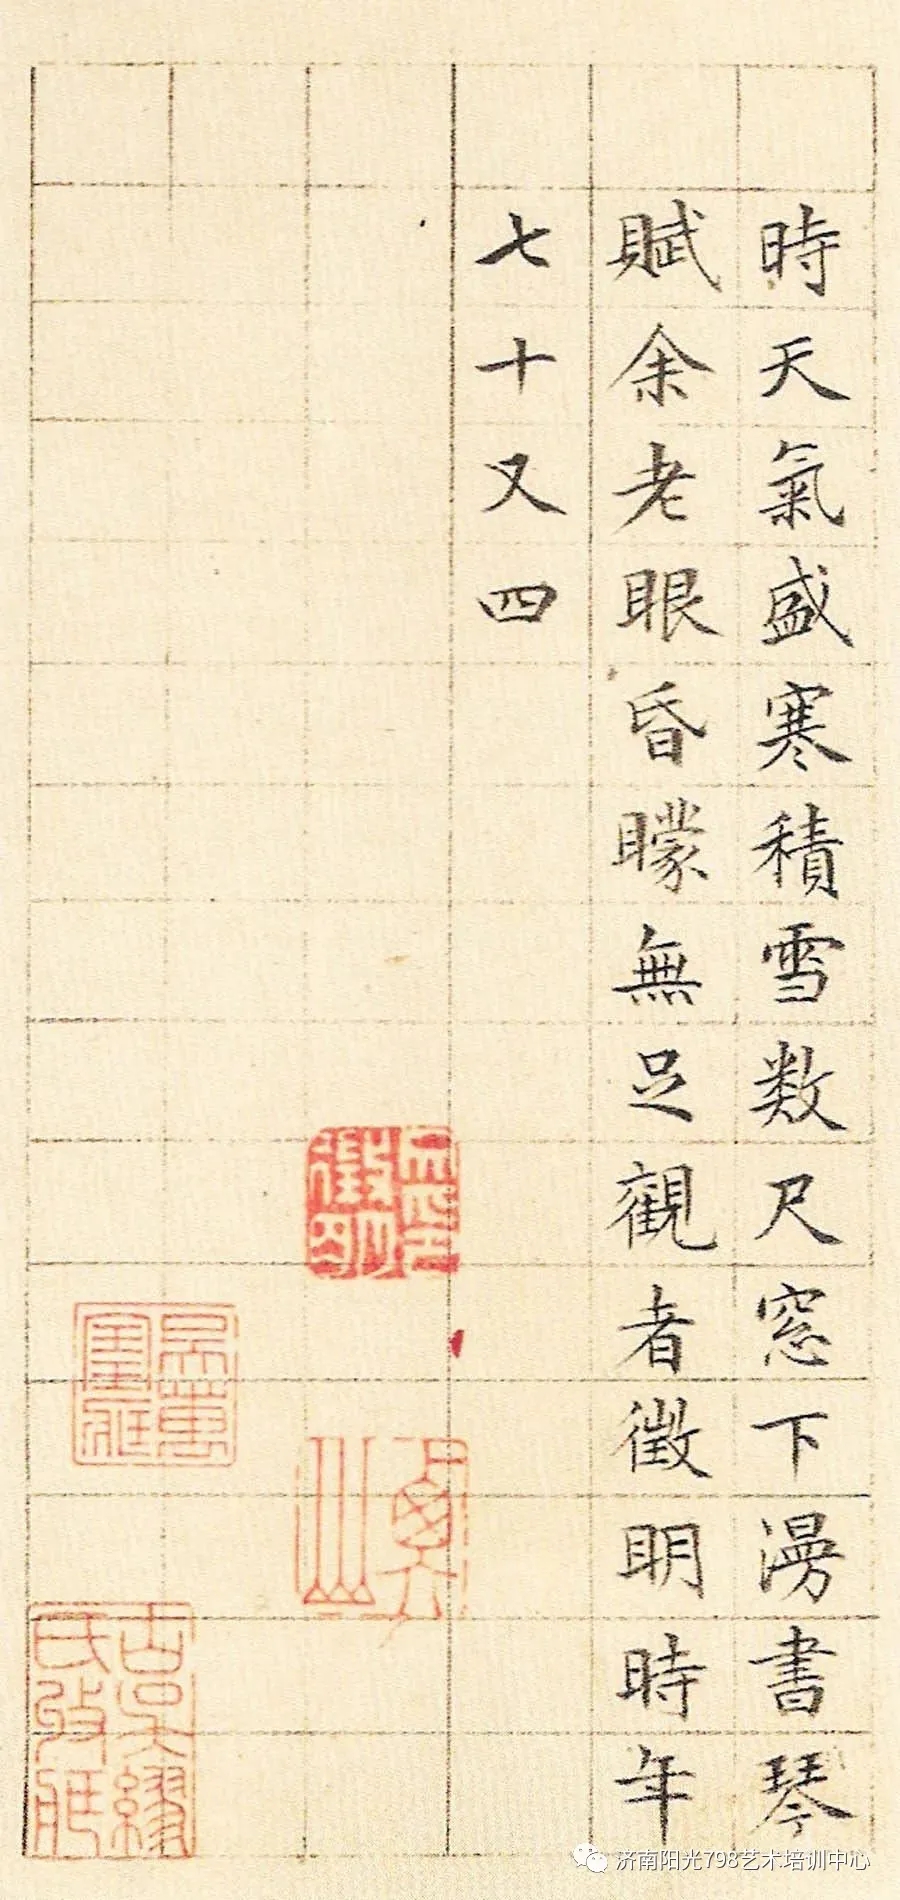 時天氣盛寒積雪数尺窓下漫書琴
賦余老眼昏矇無足觀者徵眀時年
七十又四
徵明
古吳繆氏
济南阳光798艺术培训中心